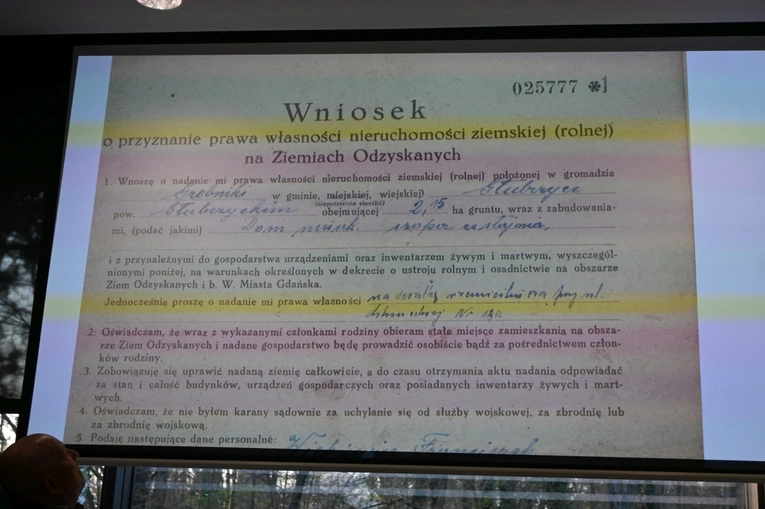 025777 *1
Wniosek
o przyznanie prawa własności nieruchomości ziemskiej (rolnej)
na Ziemiach Odzyskanych
1. Wnoszę o nadanie mi prawa własności nieruchomości ziemskiej (rolnej) położonej w gromadzie
Grobniki w gminie, miejskiej, wiejskiej) Głubczyce
(niepotrzebne skreślić)
pow. Głubczyckim obejmującej 2,15 ha gruntu, wraz z zabudowania-
mi, (podać jakimi) Dom mieszk. szopa
i z przynależnymi do gospodarstwa urządzeniami oraz inwentarzem żywym i martwym, wyszczegól-
nionymi poniżej, na warunkach określonych w dekrecie o ustroju rolnym i osadnictwie na obszarze
Ziem Odzyskanych i b. W. Miasta Gdańska.
Jednocześnie proszę o nadanie mi prawa własności na przy ul.
Nr
2. Oświadczam, że wraz z wykazanymi członkami rodziny obieram stałe miejsce zamieszkania na obsza-
rze Ziem Odzyskanych i nadane gospodarstwo będę prowadzić osobiście bądź za pośrednictwem człon-
ków rodziny.
3. Zobowiązuję się uprawić nadaną ziemię całkowicie, a do czasu otrzymania aktu nadania odpowiadać
za stan i całość budynków, urządzeń gospodarczych oraz posiadanych inwentarzy żywych i mart-
wych.
4. Oświadczam, że nie byłem karany sądownie za uchylanie się od służby wojskowej, za zbrodnię lub
za zbrodnię wojskową.
5. Podaję następujące dane personalne: Franciszek